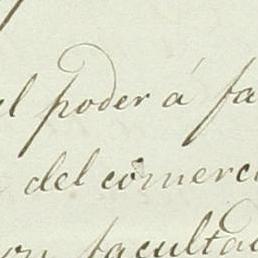 el poder á fa
del comerci
on facultad